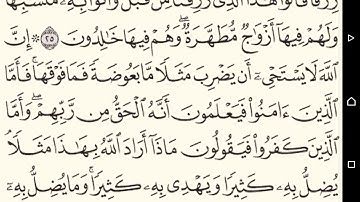 رِّزْقًا قَالُوا۟ هَٰذَا ٱلَّذِى رُزِقْنَا مِن قَبْلُ وَأُتُوا۟ بِهِۦ مُتَشَٰبِهًا
وَلَهُمْ فِيهَآ أَزْوَٰجٌ مُّطَهَّرَةٌ وَهُمْ فِيهَا خَٰلِدُونَ ٢٥ ۞ إِنَّ
ٱللَّهَ لَا يَسْتَحْىِۦٓ أَن يَضْرِبَ مَثَلًا مَّا بَعُوضَةً فَمَا فَوْقَهَا ۚ فَأَمَّا
ٱلَّذِينَ ءَامَنُوا۟ فَيَعْلَمُونَ أَنَّهُ ٱلْحَقُّ مِن رَّبِّهِمْ ۖ وَأَمَّا
ٱلَّذِينَ كَفَرُوا۟ فَيَقُولُونَ مَاذَآ أَرَادَ ٱللَّهُ بِهَٰذَا مَثَلًا ۘ
يُضِلُّ بِهِۦ كَثِيرًا وَيَهْدِى بِهِۦ كَثِيرًا ۚ وَمَا يُضِلُّ بِهِۦٓ